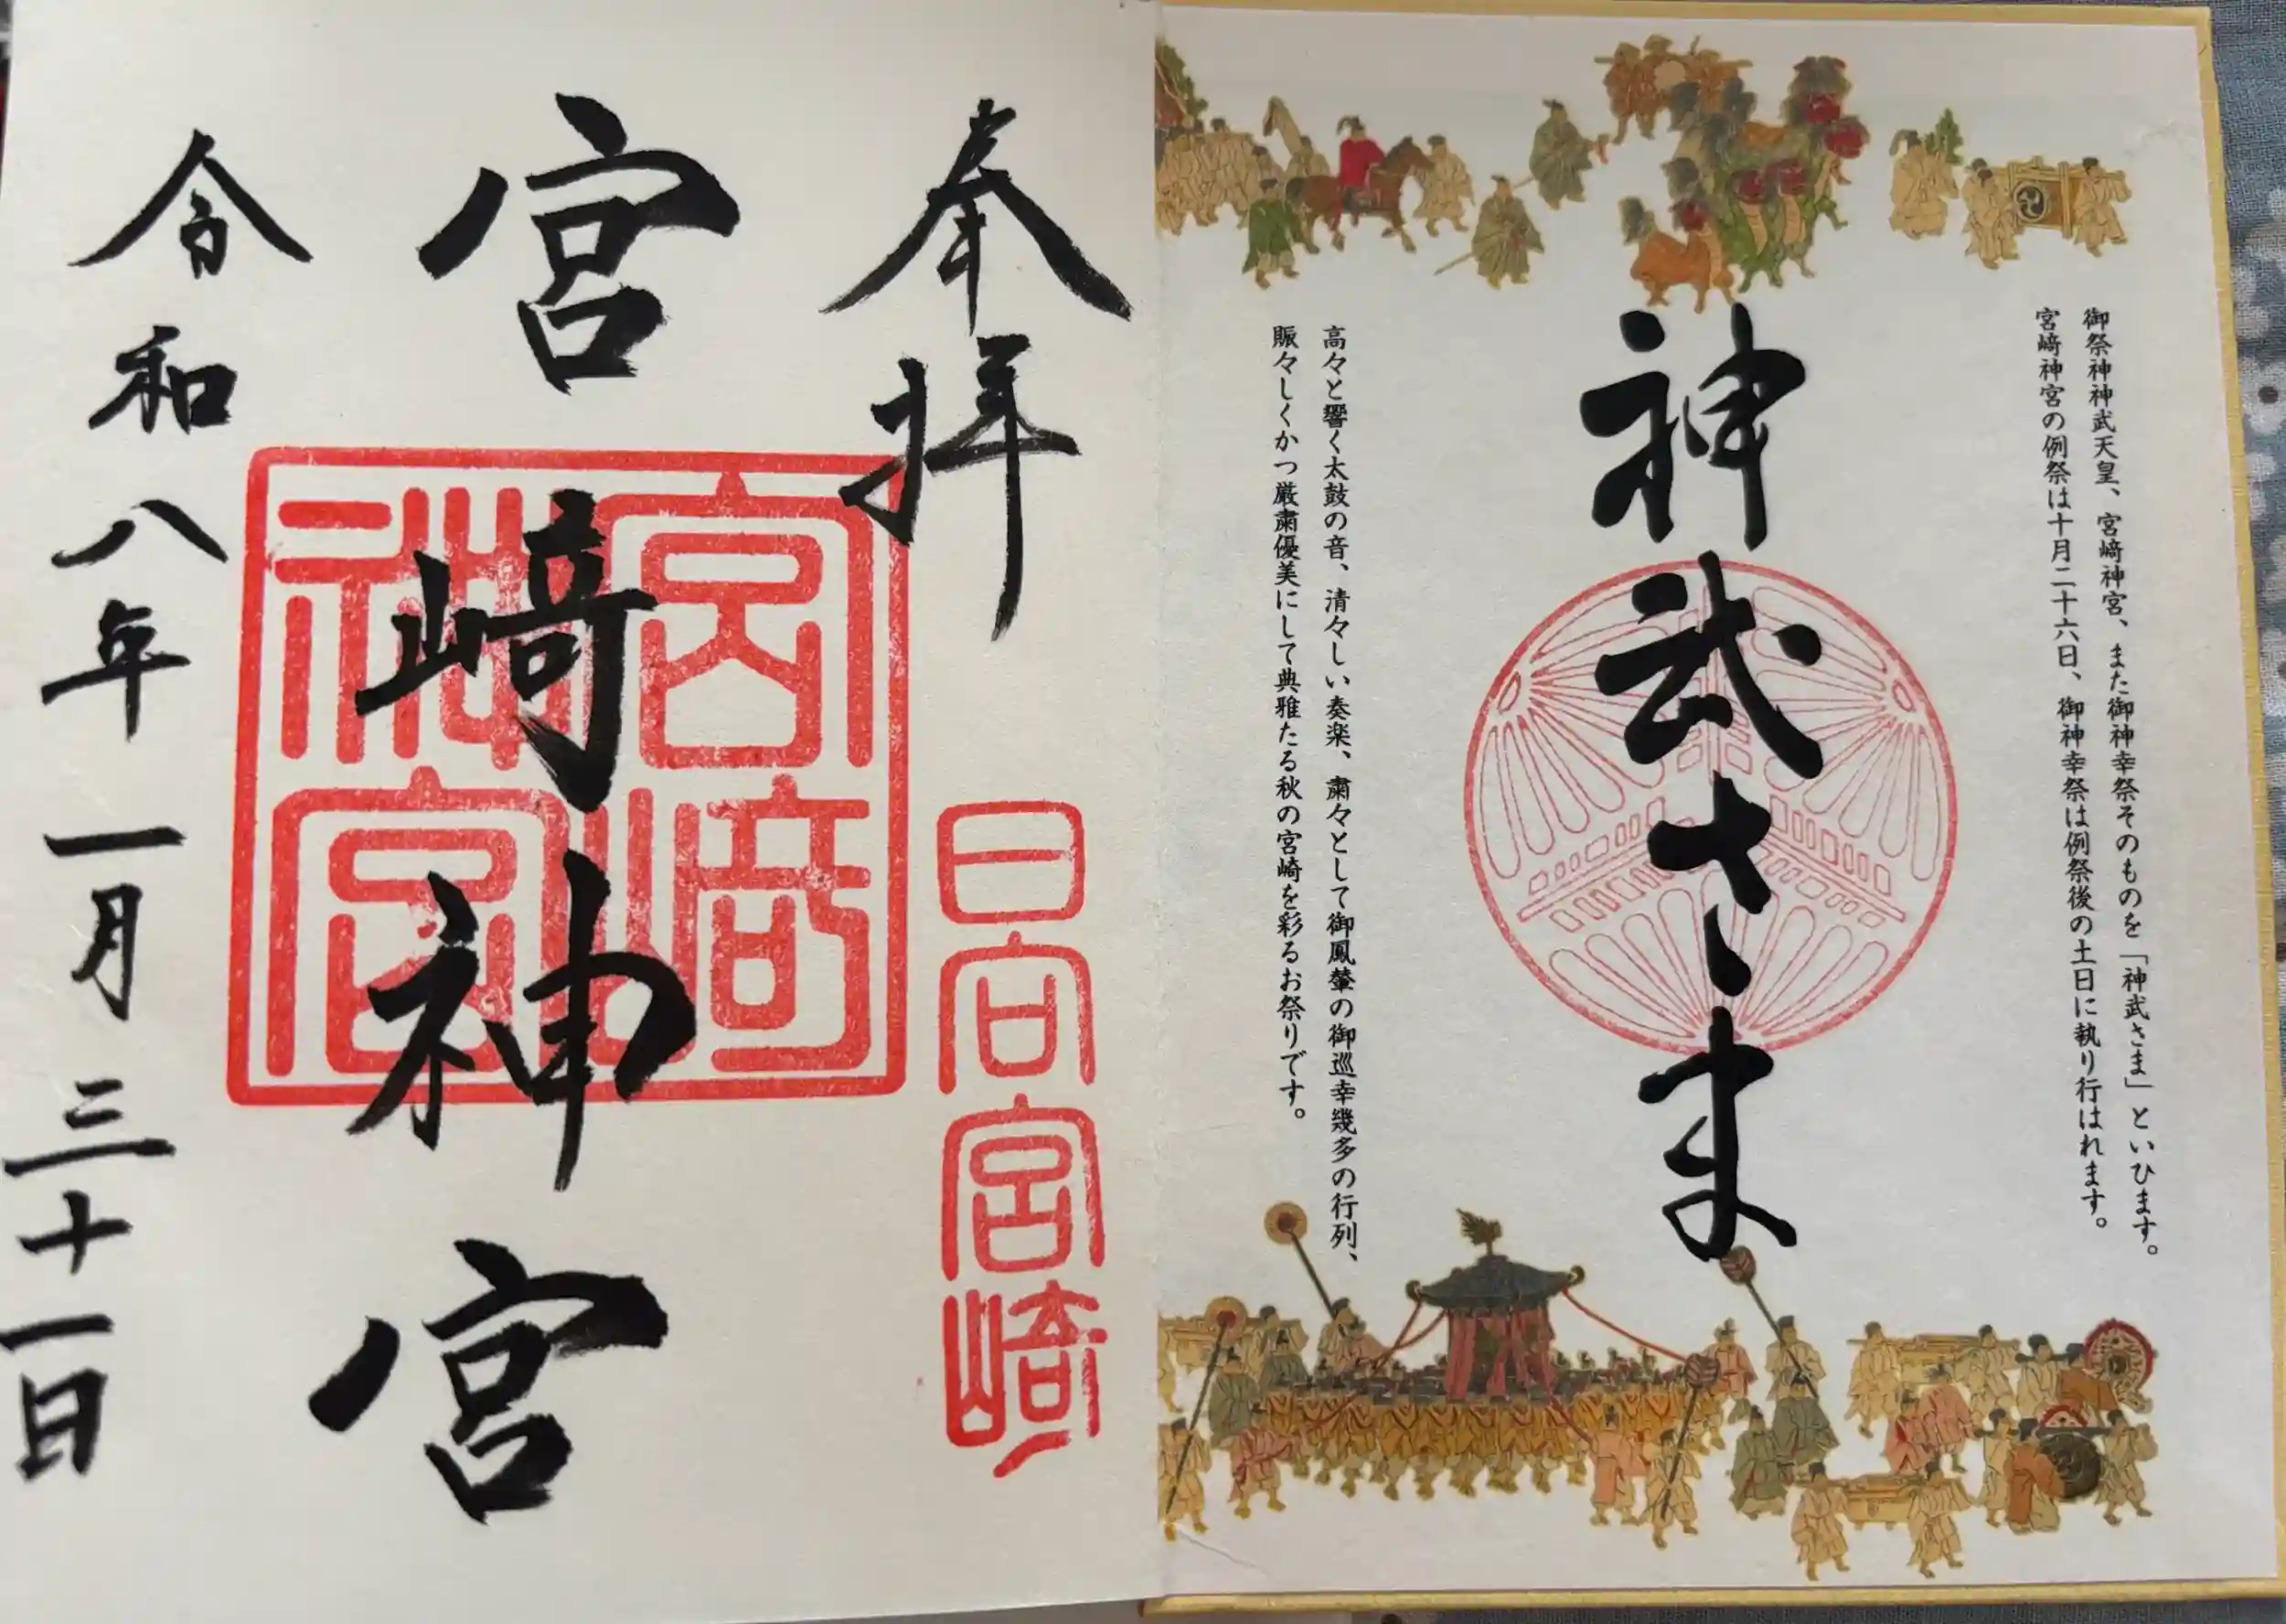 御祭神神武天皇、宮﨑神宮、また御神幸祭そのものを「神武さま」といひます。
宮﨑神宮の例祭は十月二十六日、御神幸祭は例祭後の土日に執り行はれます。
神武さま
高々と響く太鼓の音、清々しい奏楽、粛々として御鳳輦の御巡幸幾多の行列、
賑々しくかつ厳粛優美にして典雅たる秋の宮崎を彩るお祭りです。
奉拝
日向宮﨑
宮﨑神宮
宮﨑
神宮
令和八年一月三十一日